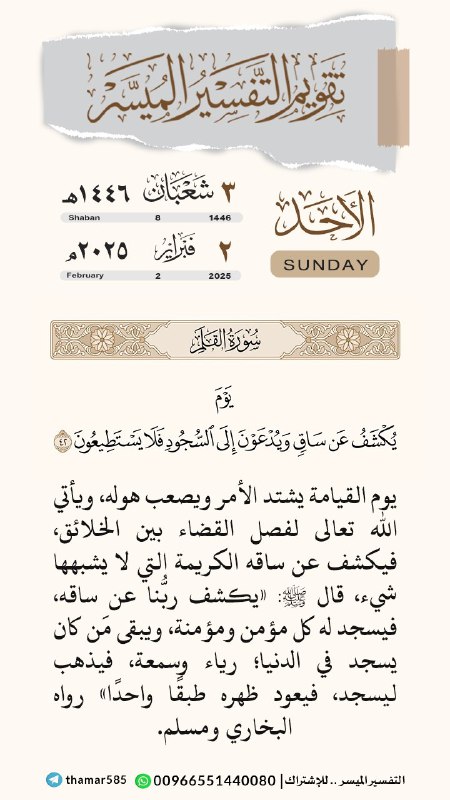 تقويم التفسير الميسر
٣ شعبان ١٤٤٦هـ
Shaban 8 1446
٢ فبراير ٢٠٢٥م
February 2 2025
الأحد
SUNDAY
سورة القلم
يَوْمَ
يُكْشَفُ عَن سَاقٍ وَيُدْعَوْنَ إِلَى ٱلسُّجُودِ فَلَا يَسْتَطِيعُونَ ٤٢
يوم القيامة يشتد الأمر ويصعب هوله، ويأتي
الله تعالى لفصل القضاء بين الخلائق،
فيكشف عن ساقه الكريمة التي لا يشبهها
شيء، قال ﷺ: «يكشف ربُّنا عن ساقه،
فيسجد له كل مؤمن ومؤمنة، ويبقى مَن كان
يسجد في الدنيا؛ رياء وسمعة، فيذهب
ليسجد، فيعود ظهره طبقًا واحدًا» رواه
البخاري ومسلم.
التفسير الميسر .. للإشتراك | 00966551440080 thamar585